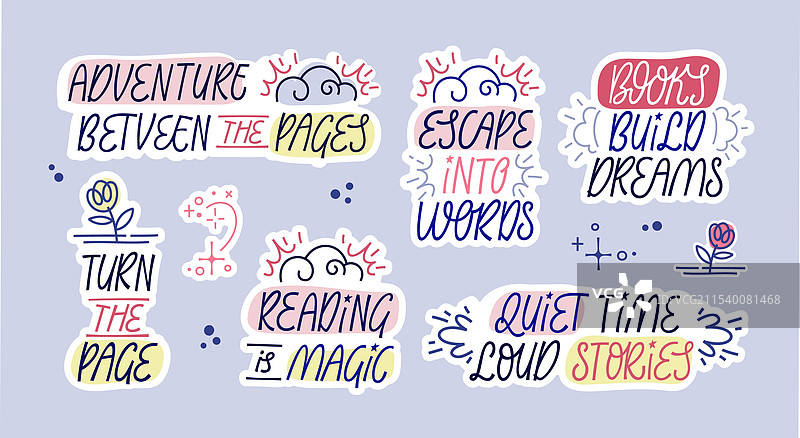 ADVENTURE
BETWEEN THE PAGES
ESCAPE
INTO
WORDS
BOOKS
BUILD
DREAMS
TURN
THE
PAGE
READING
is MAGIC
QUIET TIME
LOUD STORIES
VCG
ID:VCG211540081468